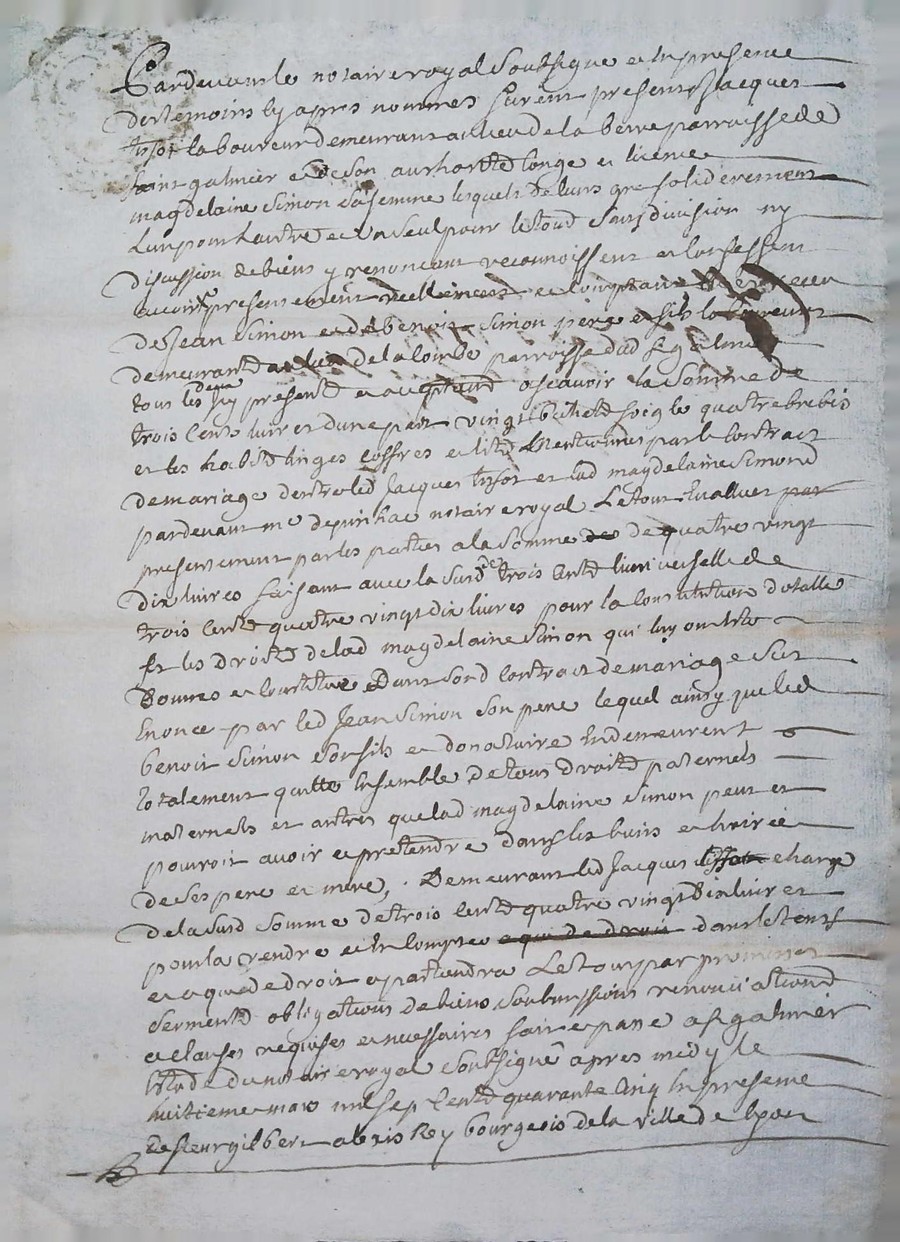 Pardevant le notaire royal soubsigne et en presence
des temoins cy apres nommes furent presents Jacques
tissot laboureur demeurant au lieu de la berre parroisse de
saint galmier et de son authorité conge et licence
magdelaine Simon sa femme lesquels de leurs gre soliderement
L'un pour L'autre et un seul pour le tout sans division ny
discussion de biens y renoncant reconnoissent et confessent
avoir presentement reellement et comptant receu
de Jean Simon et de benoit Simon pere et fils laboureurs
demeurant au lieu de la combe parroisse dud St galmier
tous les deux icy present et acceptant ascavoir la somme de
trois cents livres d'une part vingt seigle quatre brebis
et les habits linges coffres et lits mentionnes par le contract
de mariage d'entre led Jacques tissot et lad magdelaine Simond
pardevant me depinhac notaire royal Le tout Evallués par
presentement par les parties a la somme des de quatre vingt
dix livres faisant avec la susd de trois cents livres celle de
trois cents quatre vingt dix livres pour la constitution dotalle
et les droits de lad magdelaine Simon qui luy ont ete
Donnes et constitues Dans sond contract de mariage sus
Enonce par led Jean Simon son pere lequel ainsy que led
benoit Simon son fils et donataire En demeurent
totalement quitte Ensemble de tous droits paternels
maternels et autres que lad magdelaine Simon peut et
pouroit avoir et pretendre dans les biens et hoirie
de ses pere et mere, Demeurant led Jacques tissot charge
de la susd somme de trois cents quatre vingt Dix livres
pour la rendre et En compter a qui de droit dans le tems
et a qui de droit apartiendra Le tout par promesses
serments obligations de biens soubmissions renonciations
et clauses requises et necessaires fait et passé a St galmier
Etude du notaire royal soubsigné apres midy le
huitieme mars mil sept cents quarante cinq En presence
de sieur gilbert alexis Rey bourgeois de la ville de lyon